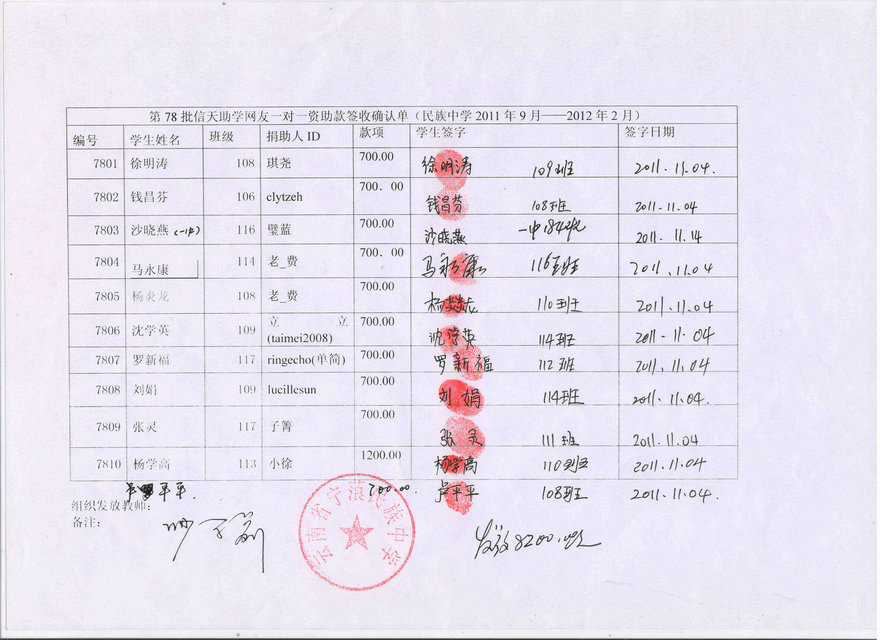 第 78 批信天助学网友一对一资助款签收确认单（民族中学 2011 年 9 月——2012 年 2 月）
编号 学生姓名 班级 捐助人 ID 款项 学生签字 签字日期
7801 徐明涛 108 琪尧 700.00 徐明涛 109班 2011.11.04.
7802 钱昌芬 106 clytzeh 700.00 钱昌芬 108班 2011.11.04
7803 沙晓燕(一中) 116 璧蓝 700.00 沙晓燕 一中184班 2011.11.14
7804 马永康 114 老_费 700.00 马永康 116班 2011.11.04
7805 杨炎龙 108 老_费 700.00 杨炎龙 110班 2011.11.04
7806 沈学英 109 立 立 (taimei2008) 700.00 沈学英 114班 2011.11.04
7807 罗新福 117 ringecho(单简) 700.00 罗新福 112班 2011.11.04
7808 刘娟 109 lucillesun 700.00 刘娟 114班 2011.11.04.
7809 张灵 117 子箐 700.00 张灵 111班 2011.11.04
7810 杨学高 113 小徐 1200.00 杨学高 110班 2011.11.04
平平. 700.00. 卢平平 108班 2011.11.04.
组织发放教师:
备注:
云南省宁蒗民族中学
发放8200.